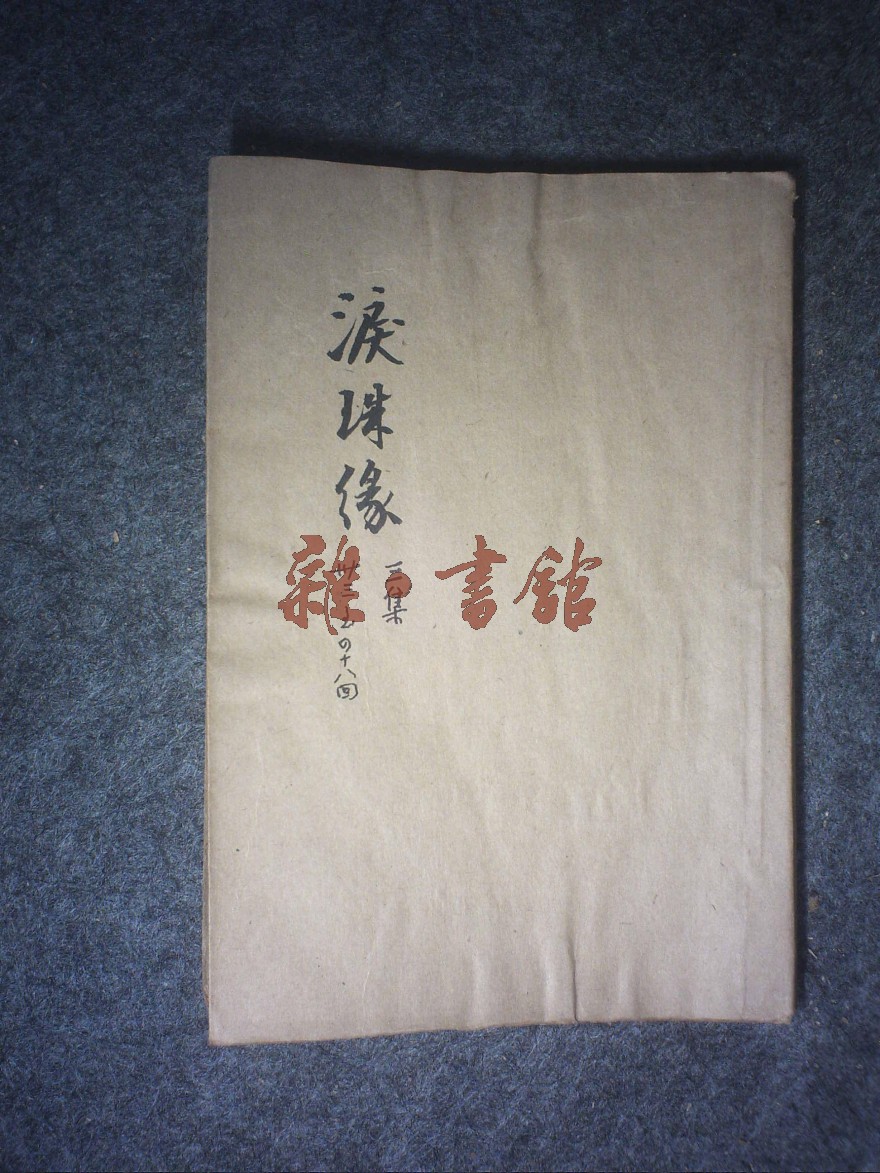 淚珠緣
三集
卅三至四十八回
雜·書舘